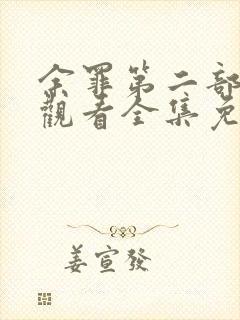 余罪第二部
觀看全集免
姜宣發